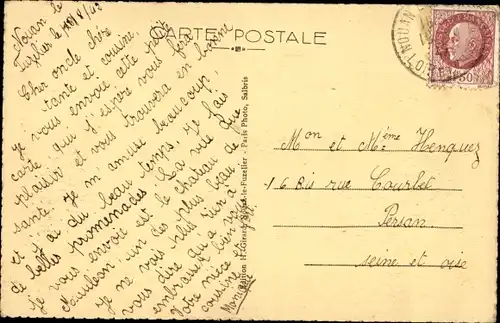 Nouan le
Fuzelier le 18/8/42
CARTE POSTALE
Cher oncle chère
tante et cousine,
Je vous envoie cette petite
carte qui j'espère vous fera
plaisir et vous trouvera en bonne
santé. Je m'amuse beaucoup,
et j'ai du beau temps. Je fais
de belles promenades. La vue que
je vous envoie est le chateau de
Nouan un des plus beau de
Je ne vois plus rien à
vous dire qu'à vous
embrasser bien fort
Votre nièce et
cousine
Monique
Mon et Mème Henquez
16 Bis rue Courbet
Persan
seine et oise
Edition H. Girard, Nouan-le-Fuzelier - Paris Photo, Salbris
NOUAN